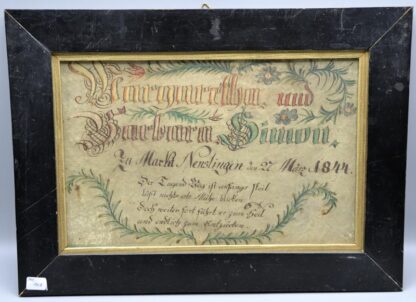 Margaretha, und
Barbara, Simon.
Zu Markt Nenslingen den 27 März 1844.
Der Tugend Weg ist anfangs steil
läßt nichts als Mühe blicken
Doch weiter fort führt er zum Heil
und endlich zum Entzücken.